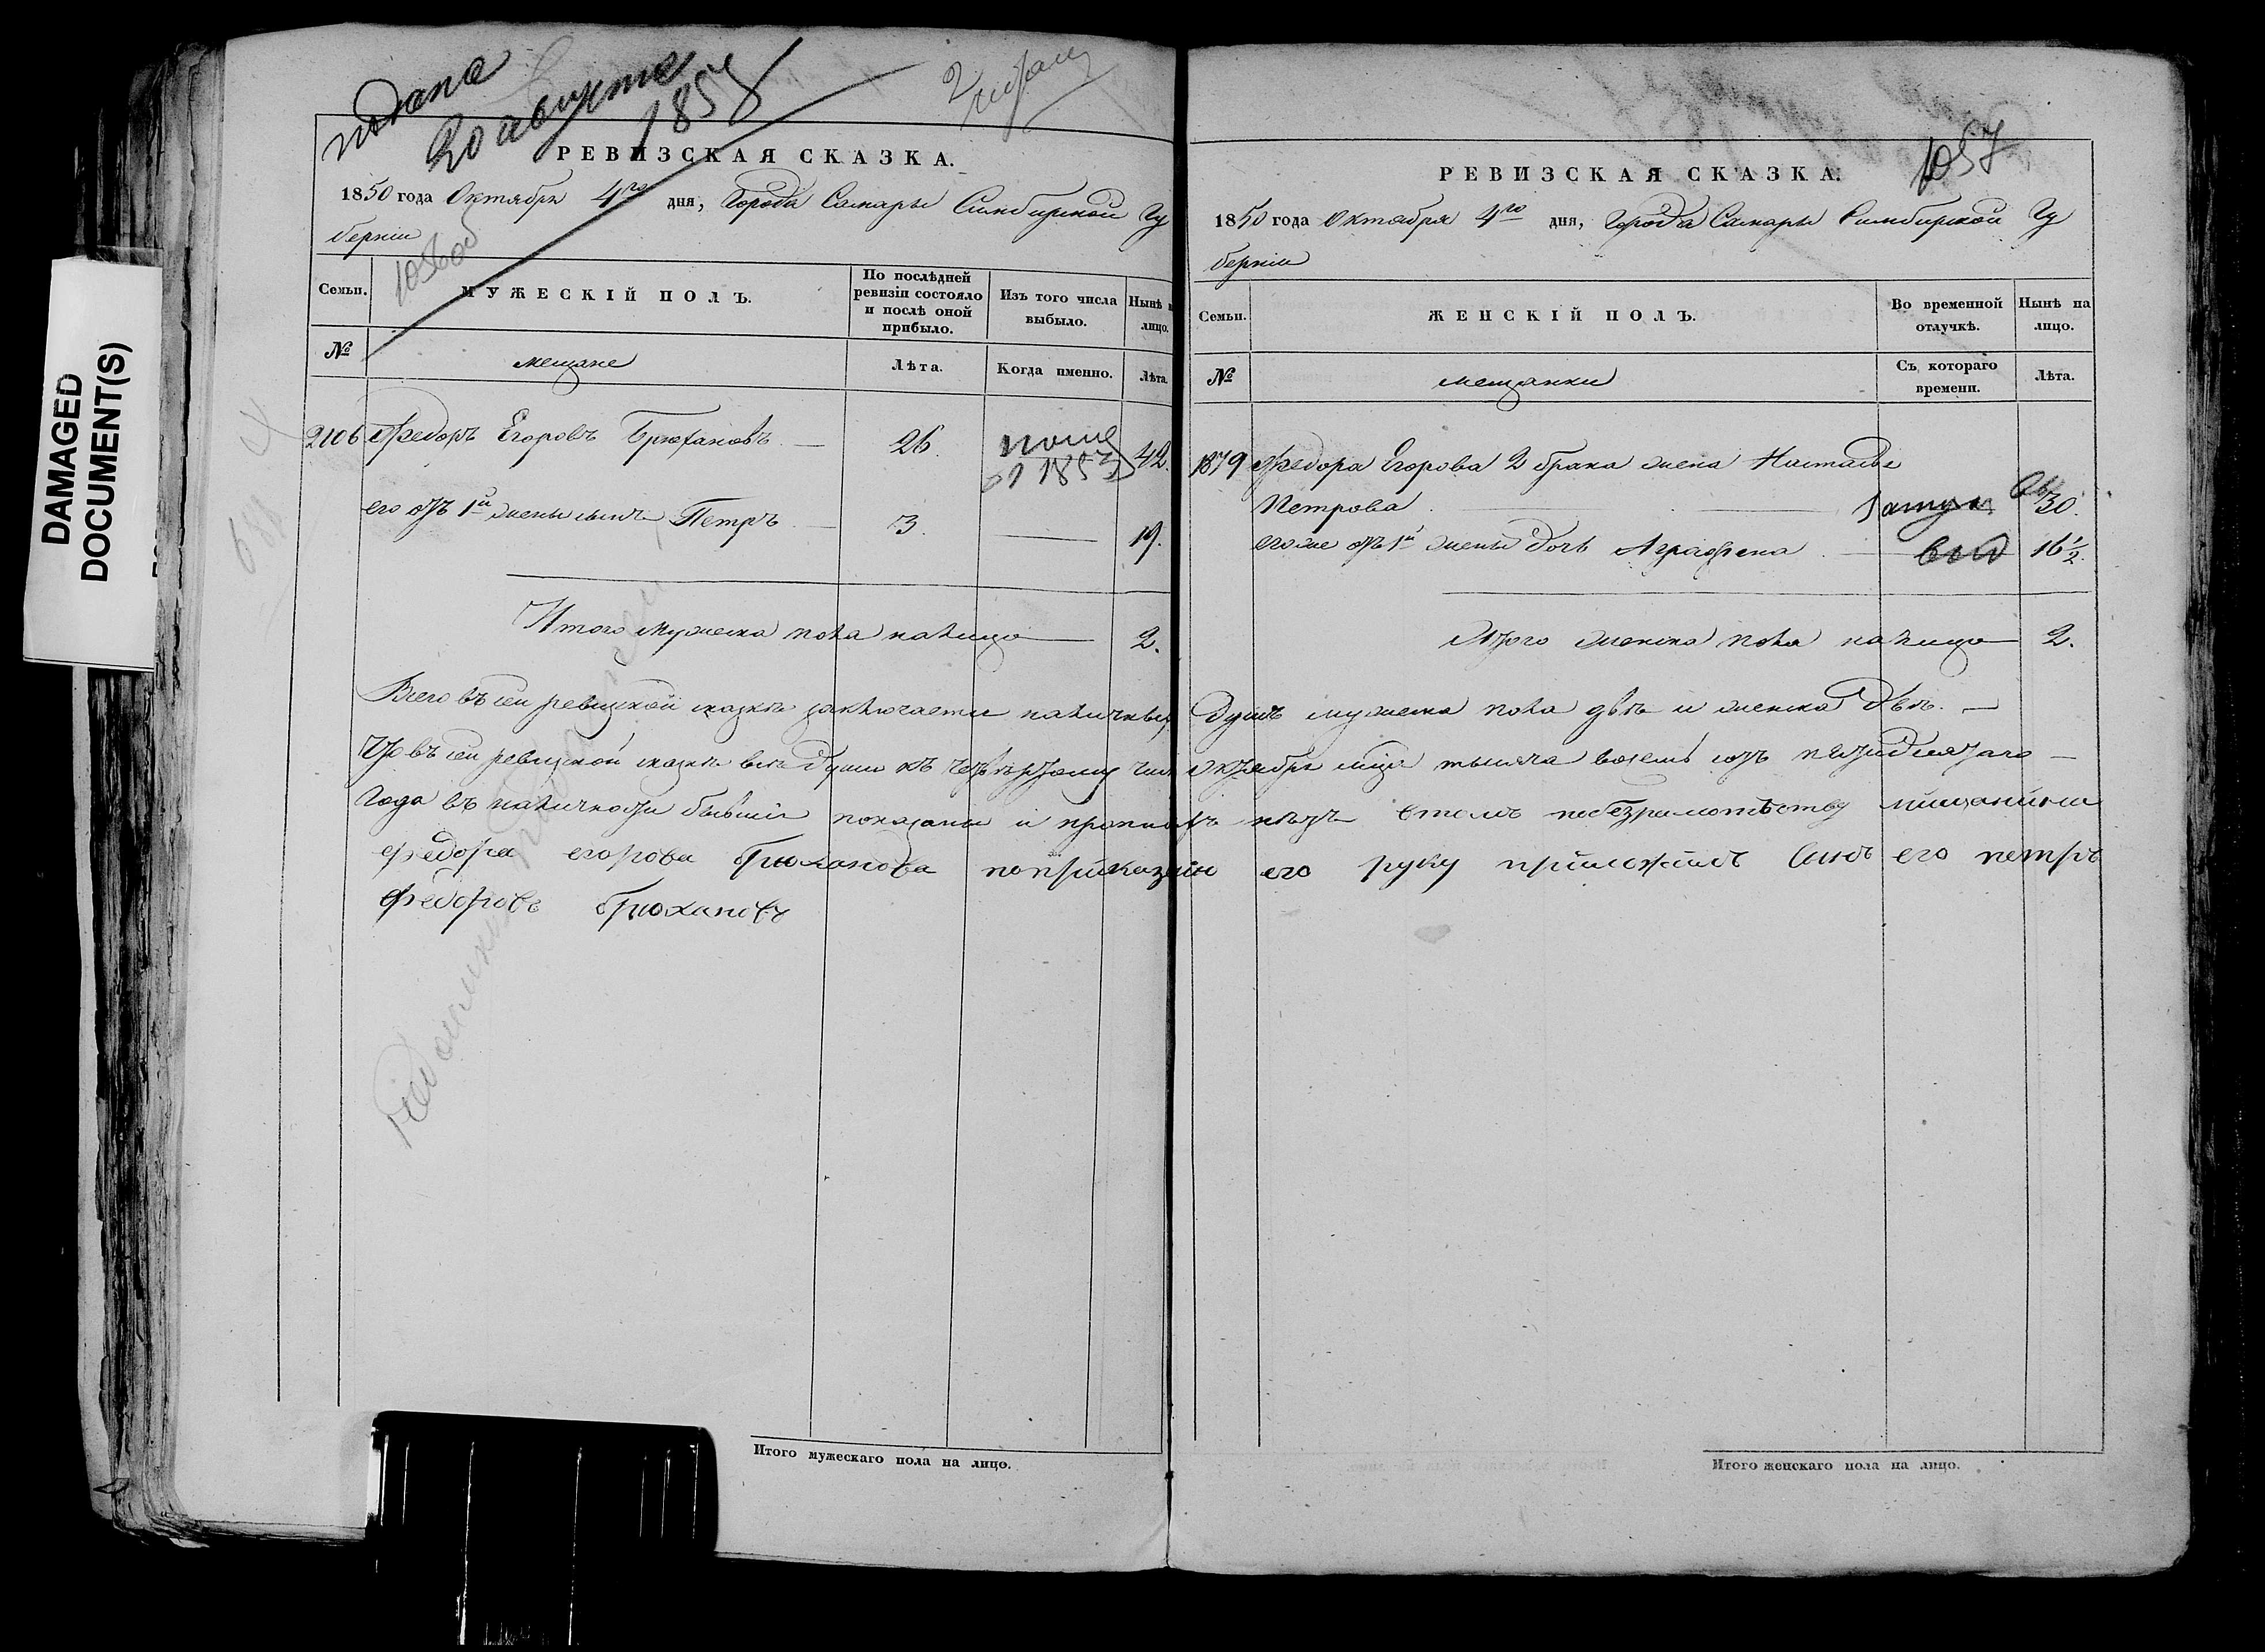 DAMAGED
DOCUMENT(S)
подана
20 августа
1857
2
РЕВИЗСКАЯ СКАЗКА.
1850 года Октября 4го дня, Города Самары Симбирской Гу
берніи
Семьи.
МУЖЕСКІЙ ПОЛЪ.
По послѣдней
ревизіи состояло
и послѣ оной
прибыло.
Изъ того числа
выбыло.
Нынѣ н
лицо.
№
мещане
Лѣта.
Когда именно.
Лѣта.
2106 Федоръ Егоровъ Брюхановъ 26. 42.
1853
его отъ 1й жены сынъ Петръ 3. 19.
Итого мужеска пола налицо 2.
Итого мужескаго пола на лицо.
1057
РЕВИЗСКАЯ СКАЗКА.
1850 года Октября 4го дня, Города Самары Симбирской Гу
берніи
Семьи.
ЖЕНСКІЙ ПОЛЪ.
Во временной
отлучкѣ.
Нынѣ на
лицо.
№
мещанки
Съ котораго
времени.
Лѣта.
1879 Федора Егорова 2 брака жена Настасья
Петрова 30.
его же отъ 1й жены дочь Аграфена 16 1/2.
Итого женска пола налицо 2.
Всего въ сей ревизской сказкѣ заключается наличныхъ душъ мужеска пола двѣ и женска двѣ.
Что въ сей ревизской сказкѣ всѣ души къ четвертому чис Октября мца тысяча восемь сотъ пятидесятаго
Года въ наличности бывшіе показаны и прописныхъ нѣтъ втомъ побезграмотству мищанина
федора егорова брюханова поприказанію его руку приложилъ сынъ его петръ
федоровъ брюхановъ
Итого женскаго пола на лицо.